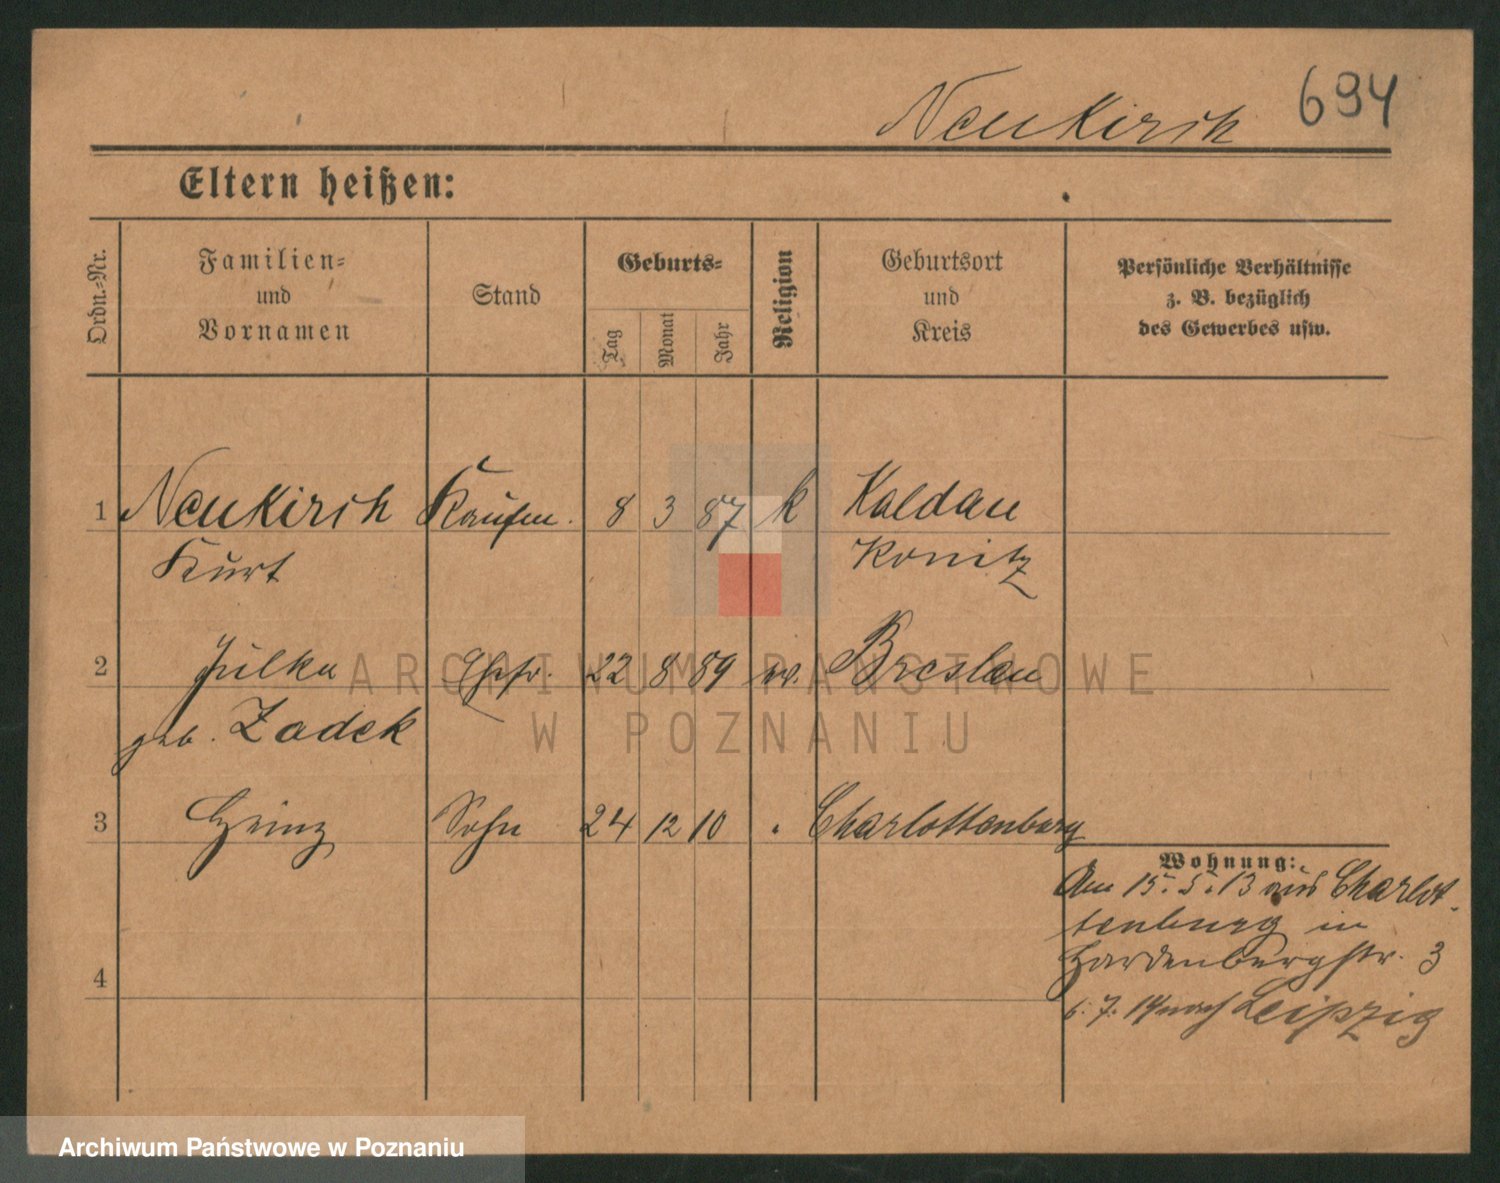 Neukirch 694
Eltern heißen:
Ordn.-Nr.
Familien-
und
Vornamen
Stand
Geburts-
Tag
Monat
Jahr
Religion
Geburtsort
und
Kreis
Persönliche Verhältnisse
z. B. bezüglich
des Gewerbes usw.
1 Neukirch Kaufm. 8 3 87 k Kaldau
Kurt Konitz
2 Julka Ehefr. 22 8 89 Breslau
geb. Zadek
3 Heinz Sohn 24 12 10 Charlottenburg
Wohnung:
Am 15.5.13 aus Charlot-
tenburg in
Hardenbergstr. 3
4
6.7.14 nach Leipzig
ARCHIWUM PAŃSTWOWE
W POZNANIU
Archiwum Państwowe w Poznaniu